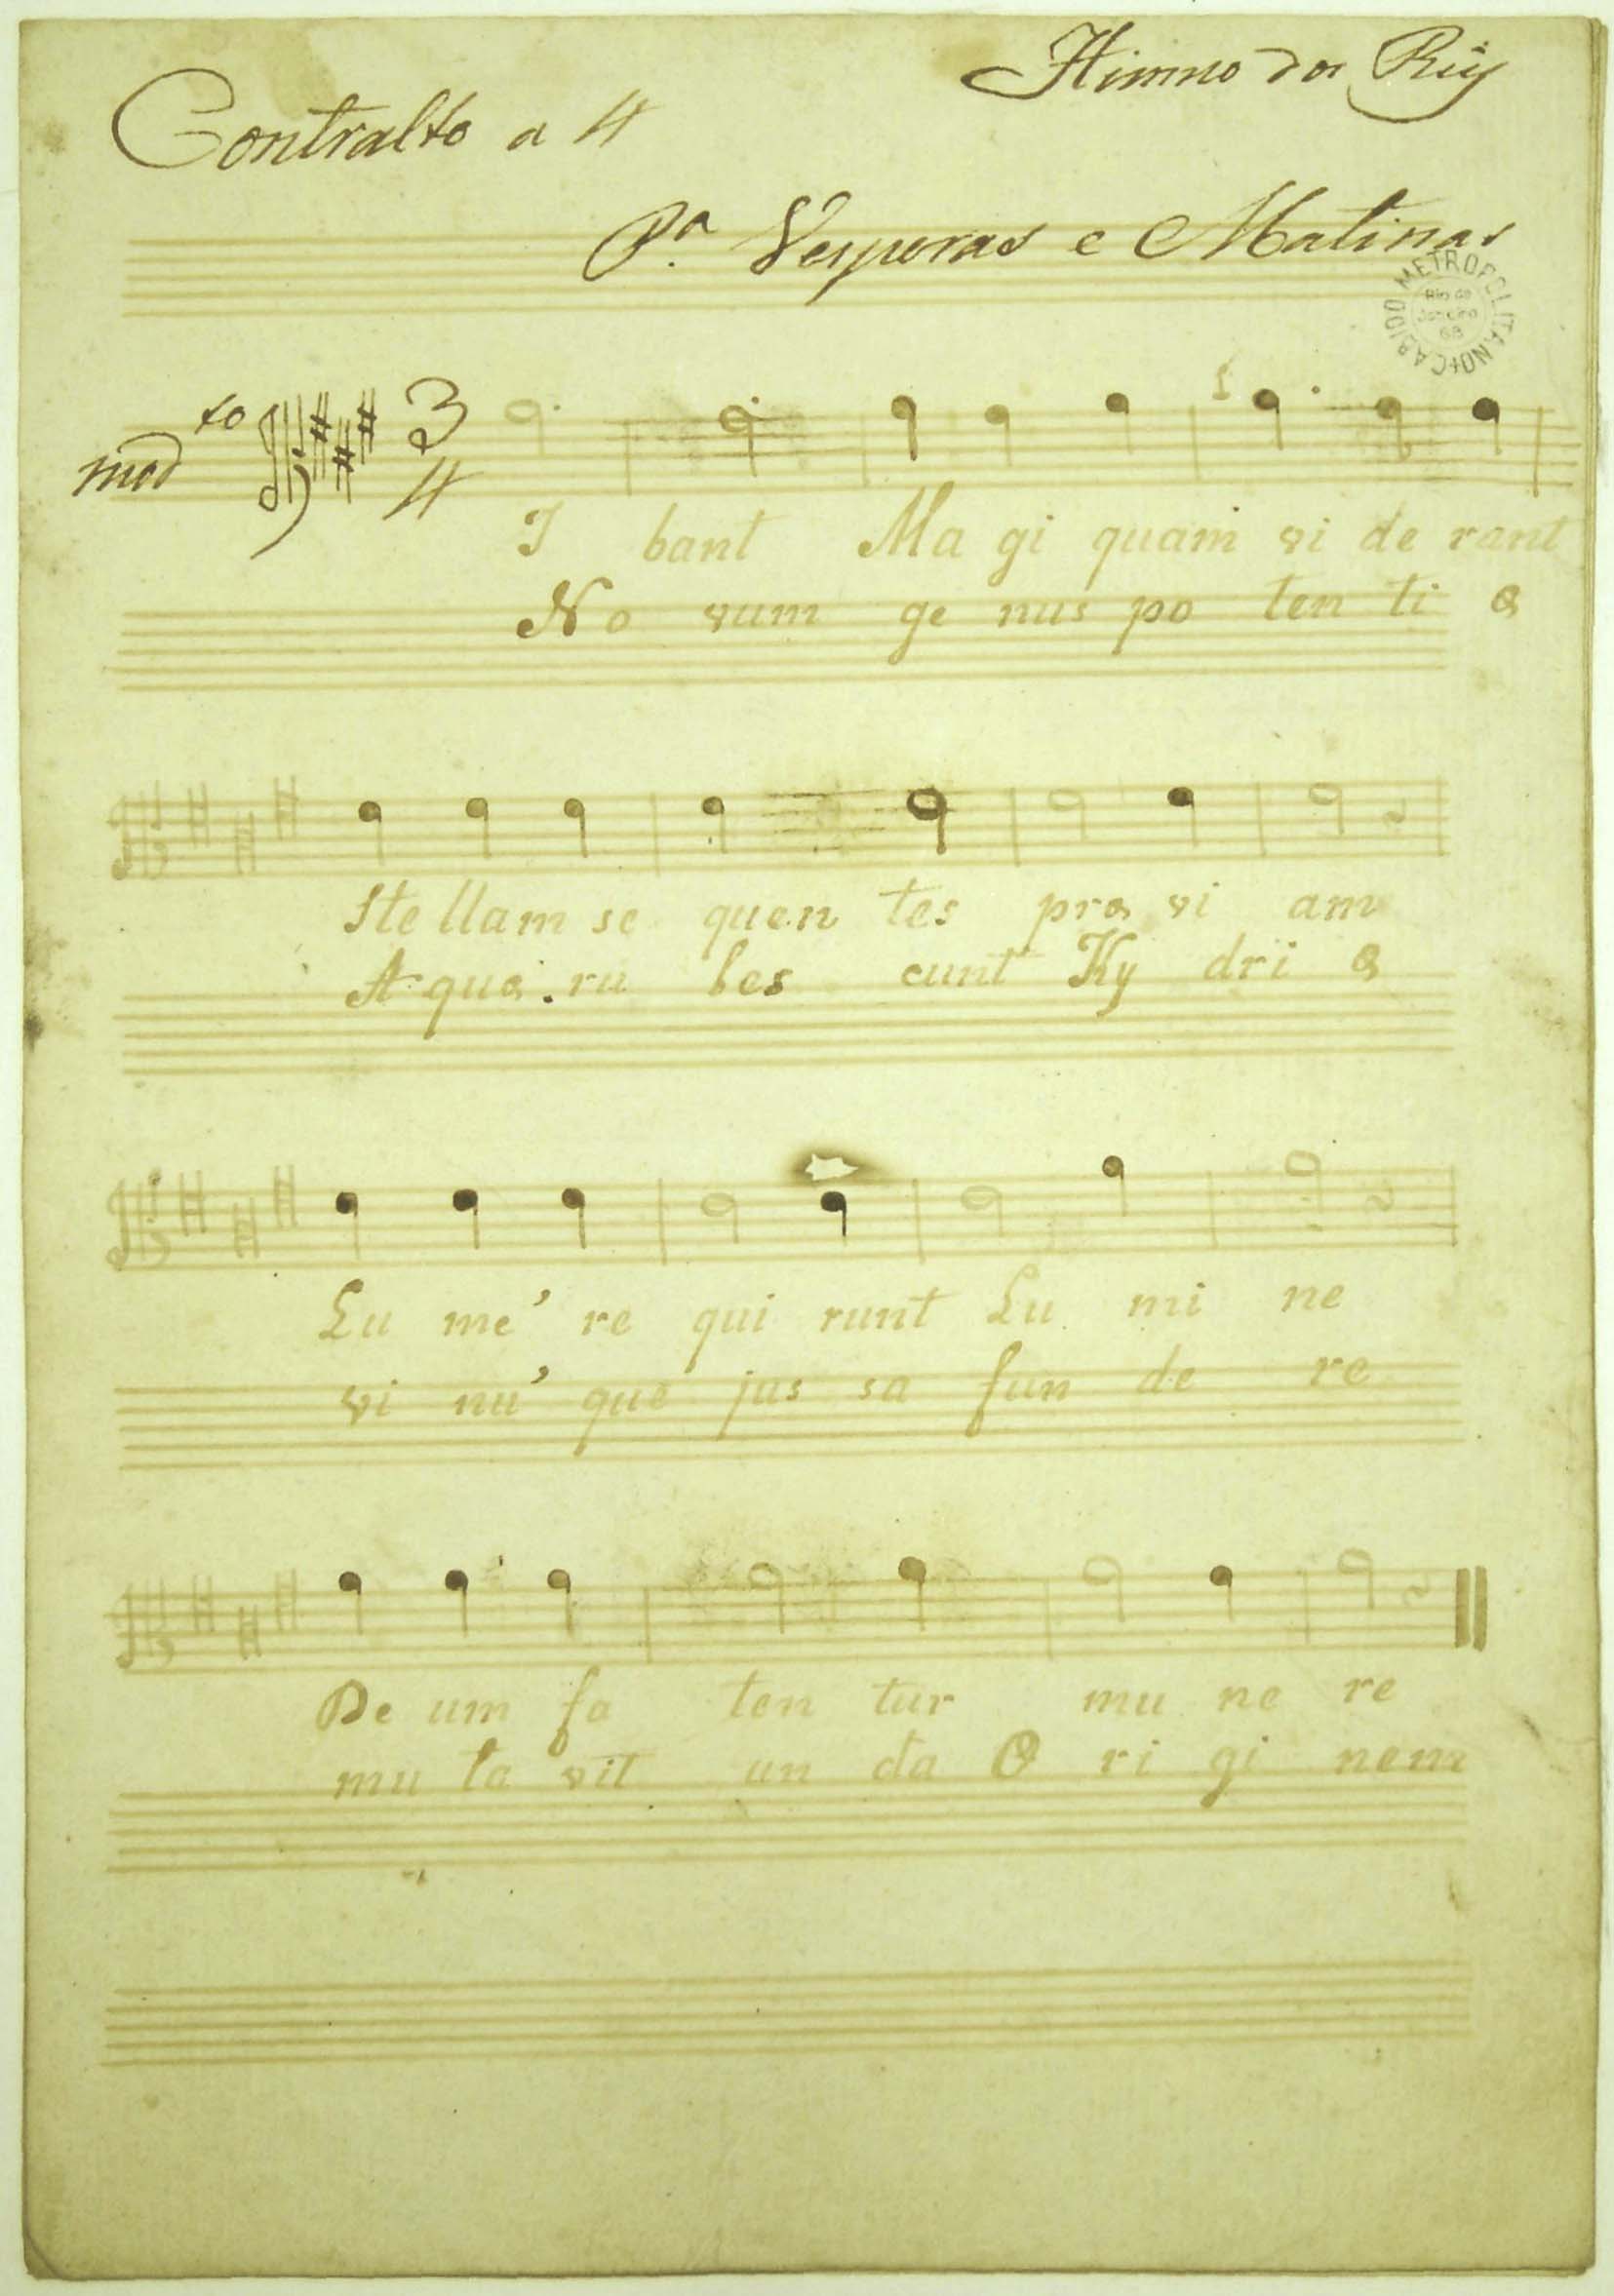 Himno dos Reys
Contralto a 4
Pª. Vesperas e Matinas
CABIDO METROPOLITANO
Rio de
Janeiro
68
modto 3
4
I bant Ma gi quam vi de rant
No vum ge nus po ten ti æ
Ste llam se quen tes præ vi am
A quæ . ru bes cunt Hy dri æ
Lu me' re qui runt Lu mi ne
vi nu' que jus sa fun de re
De um fa ten tur mu ne re
mu ta vit un da O ri gi nem